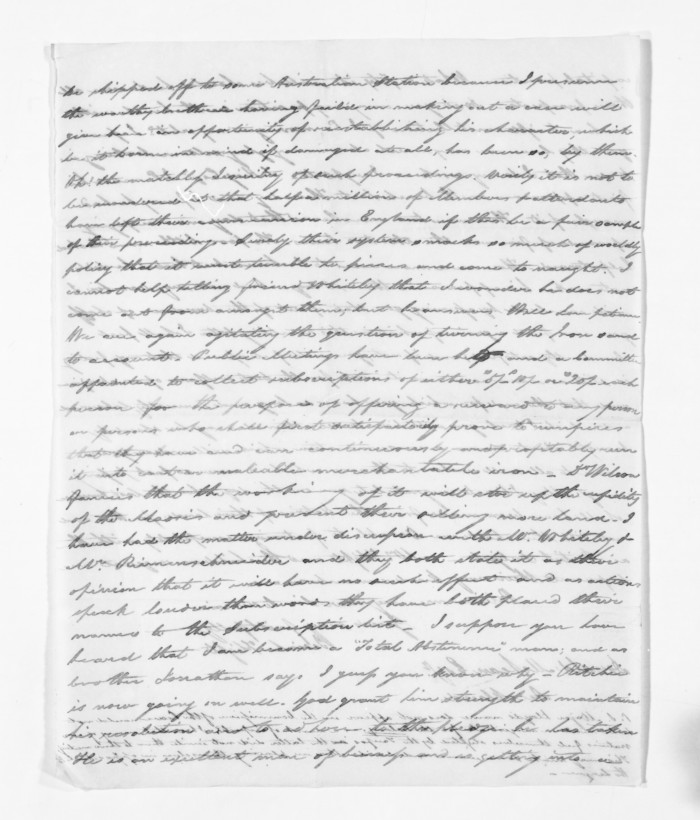 be shipped off to some Australian Station because I presume
the worthy brethren having failed in making out a case will
give him an opportunity of reestablishing his character, which
be it borne in mind if damaged at all, has been so, by them.
Oh! the matchless iniquity of such proceedings. Verily it is not to
be wondered at that half a million of Members & attendants
have left their connexion in England if this be a fair sample
of their proceedings. Surely their system smacks so much of worldly
policy that it must tumble to pieces and come to naught. I
cannot help telling friend Whiteley that I wonder he does not
come out from amongst them, but
We are again agitating the question of turning the Iron sand
to account. Public Meetings have been held and a Committee
appointed to collect subscriptions of either "5/- 10/- or "20/- each
person for the purpose of offering a reward to any person
or persons who shall first satisfactorily prove to umpires
that they have and can continuously and profitably run
it into cast or malleable merchantable iron - Dr Wilson
fancies that the working of it will stir up the cupidity
of the Maoris and prevent their selling more land. I
have had the matter under discussion with Mr. Whiteley &
Mr. Riemenschneider and they both state it as their
opinion that it will have no such effect and as actions
speak louder than words they have both placed their
names to the Subscription list - I suppose you have
heard that I am become a "Total Abstinence" man; and as
brother Jonathan says I guess you know why - Ritchie
is now going on well. God grant him strength to maintain
his resolution and to adhere to the pledge he has taken
He is an excellent man of business and is getting into a